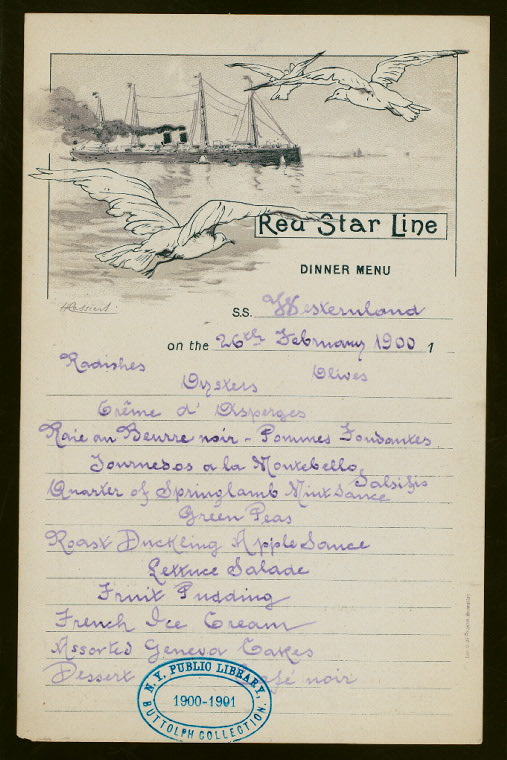 Red Star Line
DINNER MENU
S.S. Westernland
on the 26th February 1900 1
Radishes
Oysters Olives
Crême d' Asperges
Raie au Beurre noir - Pommes Fondantes
Tournedos a la Montebello
Salsifis
Quarter of Springlamb Mint Sauce
Green Peas
Roast Duckling Apple Sauce
Lettuce Salade
Fruit Pudding
French Ice Cream
Assorted Geneva Cakes
Dessert Café noir
N.Y. PUBLIC LIBRARY,
1900-1901
BUTTOLPH COLLECTION.